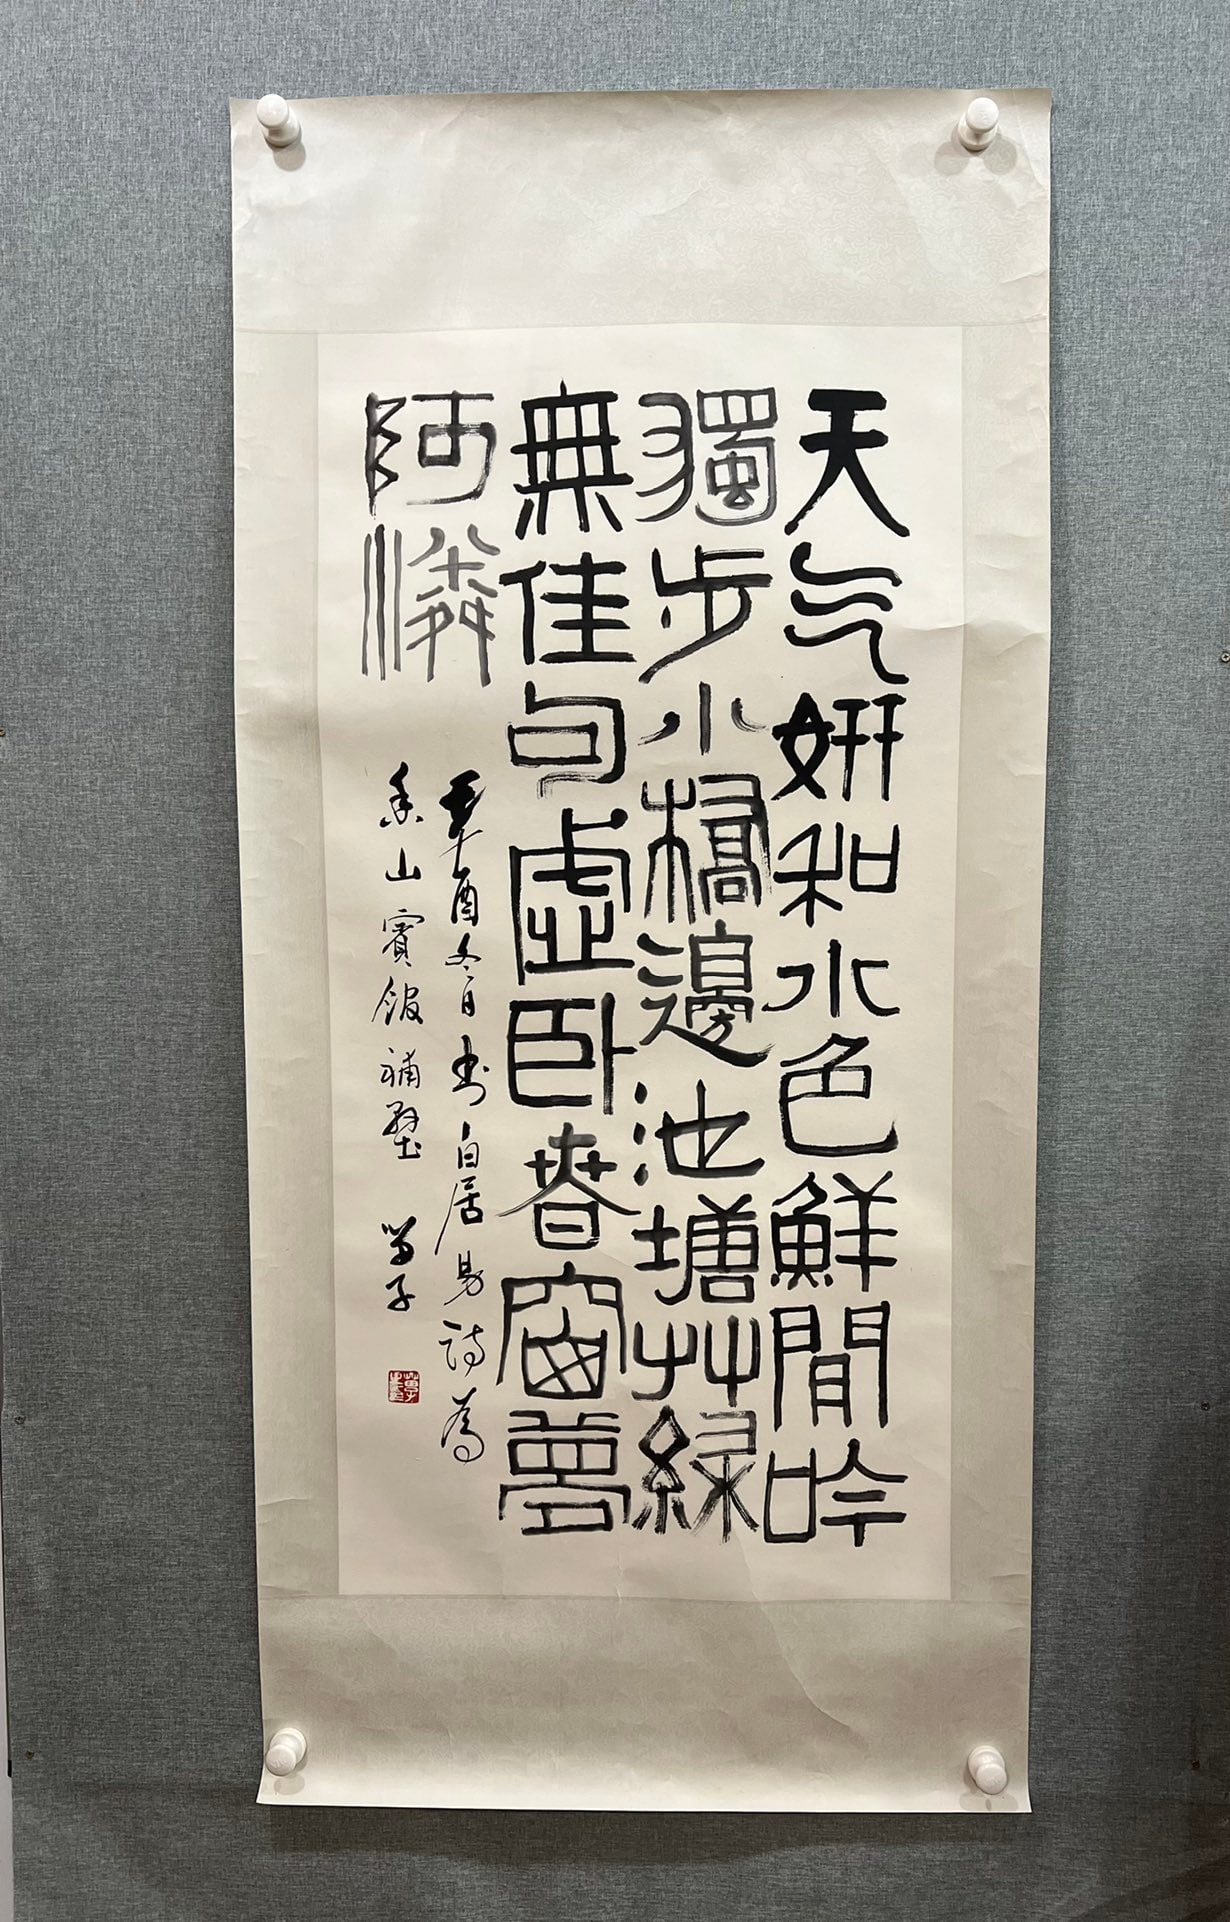 天气妍和水色鮮閒吟
獨步小橋邊池塘艸緑
無佳句虛臥春窗夢
阿憐
辛酉冬日书白居易詩為
香山賓館補壁